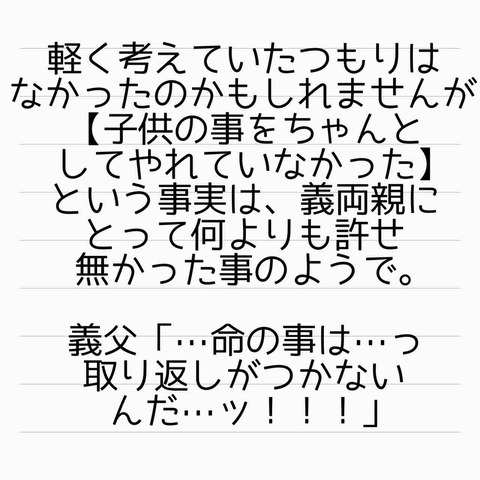 軽く考えていたつもりは
なかったのかもしれませんが
【子供の事をちゃんと
してやれていなかった】
という事実は、義両親に
とって何よりも許せ
無かった事のようで。
義父「…命の事は…っ
取り返しがつかない
んだ…ッ！！！」